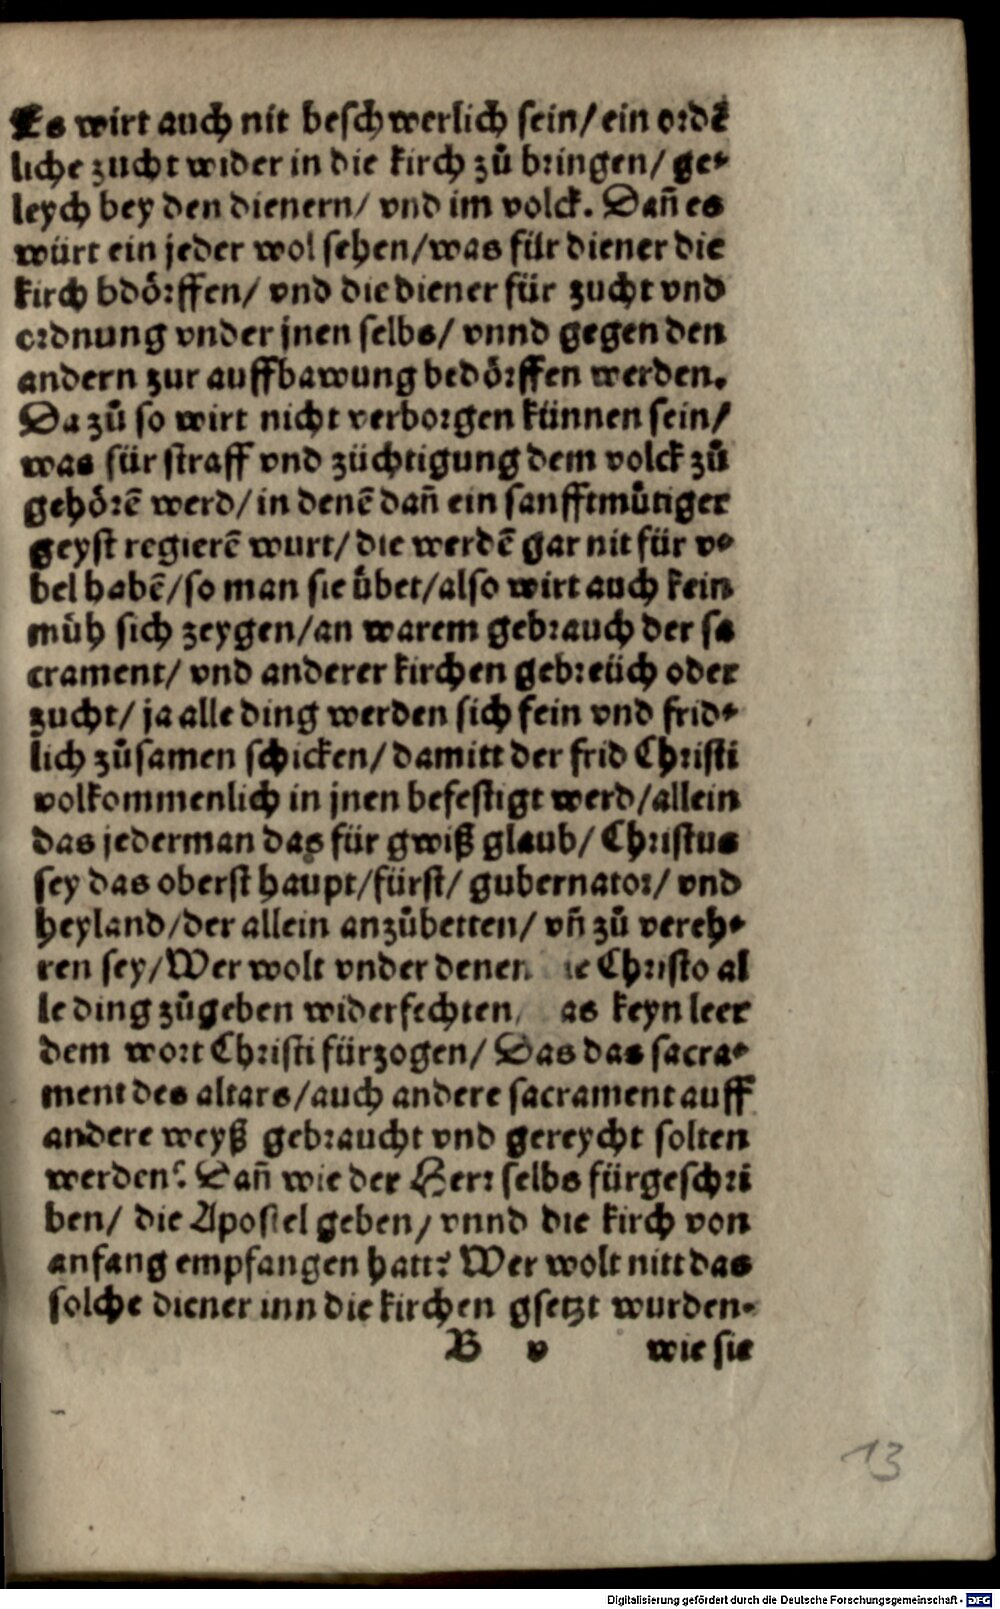 Es wirt auch nit beschwerlich sein/ ein ordē
liche zucht wider in die kirch zů bringen/ ge⸗
leych bey den dienern/ vnd im volck. Dañ es
würt ein jeder wol sehen/ was für diener die
kirch bdörffen/ vnd die diener für zucht vnd
ordnung vnder jnen selbs/ vnnd gegen den
andern zur auffbawung bedörffen werden.
Da zů so wirt nicht verborgen künnen sein/
was für straff vnd züchtigung dem volck zů
gehörē werd/ in denē dañ ein sanfftmůtiger
geyst regierē wurt/ die werdē gar nit für v⸗
bel habē/ so man sie ůbet/ also wirt auch kein
müh sich zeygen/ an warem gebrauch der sa
crament/ vnd anderer kirchen gebreüch oder
zucht/ ja alle ding werden sich fein vnd frid⸗
lich zůsamen schicken/ damitt der frid Christi
volkommenlich in jnen befestigt werd/ allein
das jederman das für gwiß glaub/ Christus
sey das oberst haupt/ fürst/ gubernator/ vnd
heyland/ der allein anzůbetten/ vñ zů vereh⸗
ren sey/ Wer wolt vnder denen ie Christo al
le ding zůgeben widerfechten, as keyn leer
dem wort Christi fürzogen/ Das das sacra⸗
ment des altars/ auch andere sacrament auff
andere weyß gebraucht vnd gereycht solten
werden? Dañ wie der Herr selbs fürgeschri
ben/ die Apostel geben/ vnnd die kirch von
anfang empfangen hatt? Wer wolt nitt das
solche diener inn die kirchen gsetzt wurden⸗
B v wie sie
13
Digitalisierung gefördert durch die Deutsche Forschungsgemeinschaft - DFG